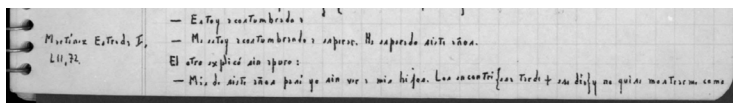 — Estoy acostumbrado a
Martínez Estrada I, — Me estoy acostumbrando a esperar. He esperado siete años.
LII, 72. El otro explicó sin apuro:
— Más de siete años pasé yo sin ver a mis hijos. Los encontré {esa tarde + ese día} y no quise mostrarme como